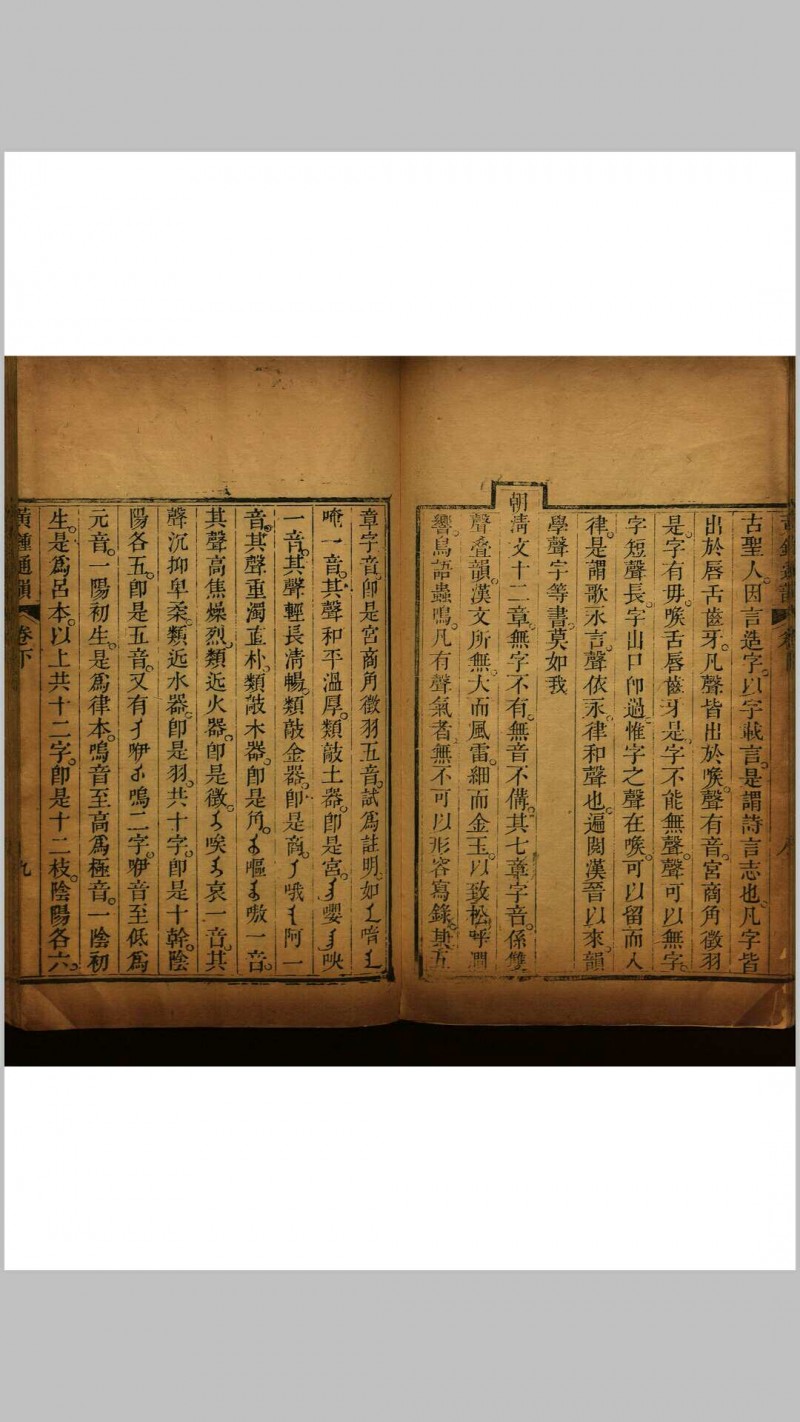 古聖人。因言造字。以字載言。是謂詩言志也。凡字皆
出於唇舌齒牙。凡聲皆出於喉。聲有音。宮商角徵羽
是。字有毋。喉舌唇齒牙是。字不能無聲。聲可以無字。
字短聲長。字出口卽過。惟字之聲在喉。可以留而入
律。是謂歌永言。聲依永。律和聲也。遍閱漢晉以來。韻
學聲字等書。莫如我
朝清文十二章。無字不有。無音不備。其七章字音。係雙
聲叠韻。漢文所無。大而風雷。細而金玉。以致松呼澗
響。鳥語蟲鳴。凡有聲氣者。無不可以形容寫錄。其五
章字音。卽是宮商角徵羽五音。試爲註明。如ᡝᠨ喑ᠠᠨ
唵一音。其聲和平溫厚。類敲土器。卽是宮。ᡝᠩ嚶ᠠᠩ映
一音。其聲輕長清暢。類敲金器。卽是商。ᡝ哦ᠠ阿一
音。其聲重濁直朴。類敲木器。卽是角。ᡝᠣ嘔ᠠᠣ嗷一音。
其聲高焦燥烈。類近火器。卽是徵。ᡝᡳ唉ᠠᡳ哀一音。其
聲沉抑卑柔。類近水器。卽是羽。共十字。卽是十幹。陰
陽各五。卽是五音。又有ᡳ咿ᡠ嗚二字。咿音至低。爲
元音。一陽初生。是爲律本。嗚音至高。爲極音。一陰初
生。是爲呂本。以上共十二字。卽是十二枝。陰陽各六。
黃鐘通韻 卷下 九